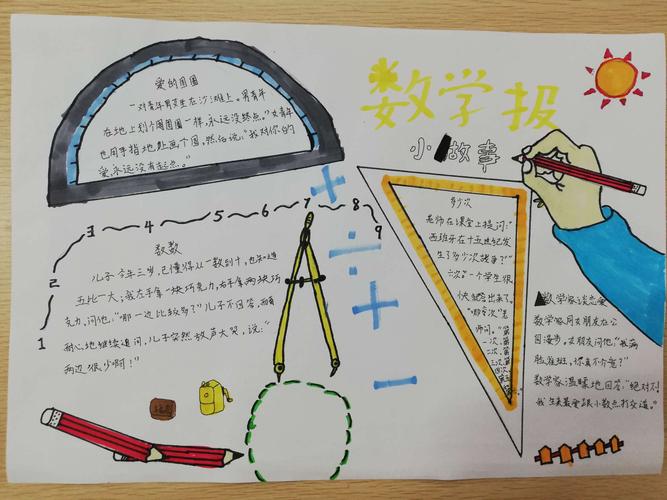 数学报
小故事
爱的圆圈
一对青年男女坐在沙滩上。男青年
在地上划个圆圆圈一样,永远没终点。"女青年
也用手指地画个圆,然后说:"我对你的
爱,永远没有起点。"
1 2 3 4 5 6 7 8 9
数数
儿子今年三岁,已懂得从一数到十,也知道
五比一大;我左手拿一块巧克力,右手拿两块巧
克力,问他:"哪一边比较多?"儿子不回答,而我
耐心地继续追问,儿子突然放声大哭,说:"
两边很少啊!"
+
÷
+
-
多少次
老师在课堂上提问:"
西班牙在十五世纪发
生了多少次战争?"
六次"一个学生很
快回答出来了。
"哪六次"老
师问。"第
一次、第
二次、第
三次第
四次、
数学家谈恋爱
数学家同女朋友在公
园漫步。女朋友问他"我满
脸雀斑,你真不介意?"
数学家温柔地回答:"绝对不
我生来最爱跟小数点打交道。"